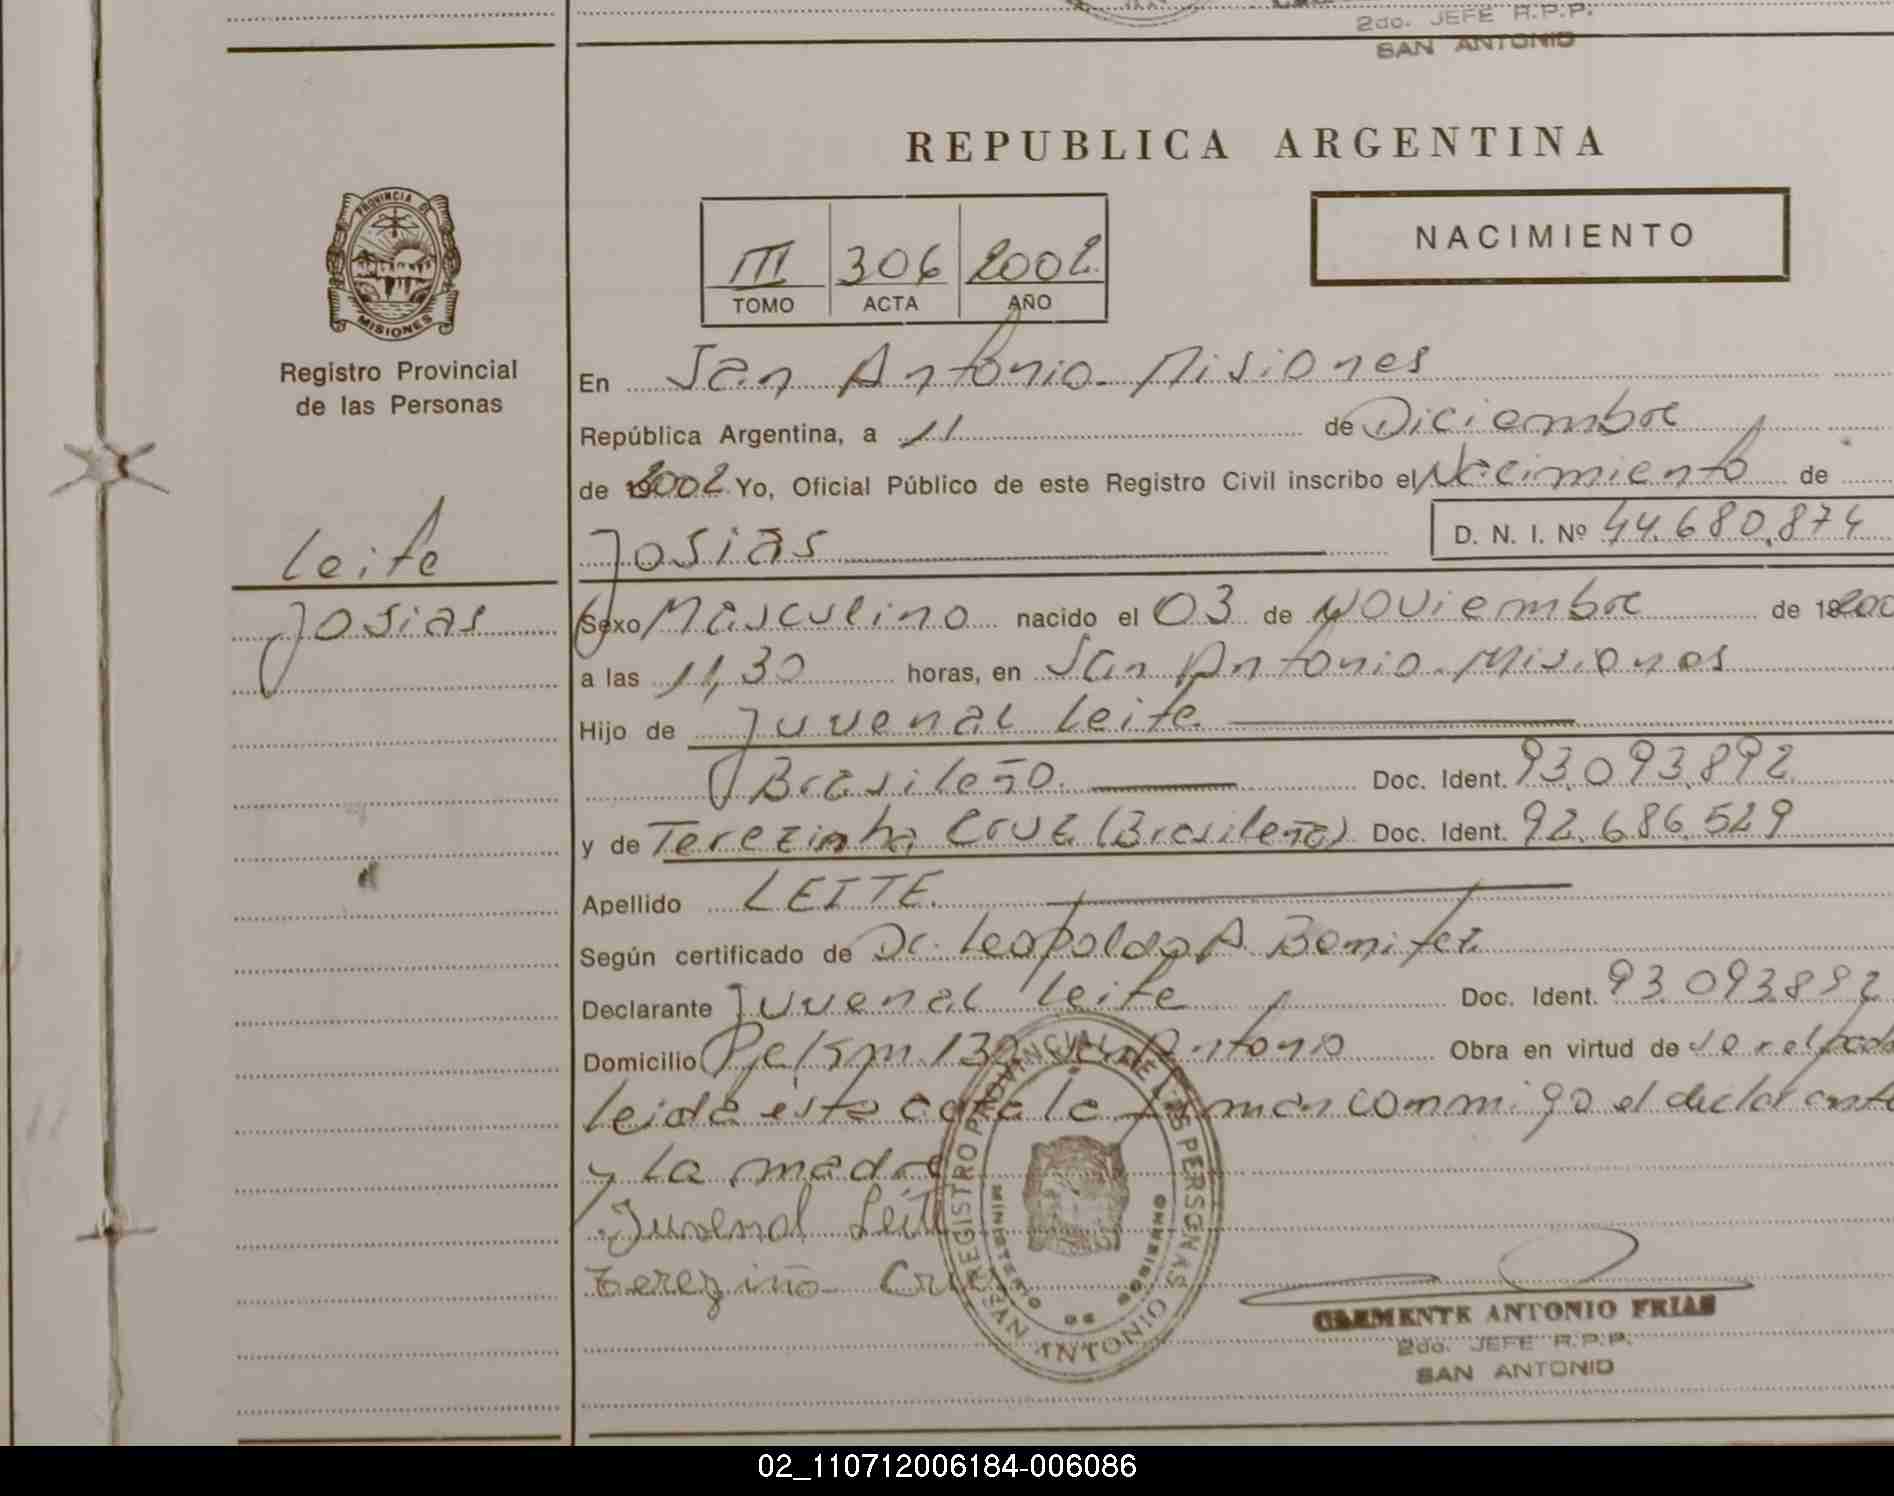 2do. JEFE R.P.P.
SAN ANTONIO
REPUBLICA ARGENTINA
PROVINCIA DE
MISIONES
Registro Provincial
de las Personas
III 306 2002
TOMO ACTA AÑO
NACIMIENTO
En San Antonio Misiones
República Argentina, a 11 de Diciembre
de 2002 Yo, Oficial Público de este Registro Civil inscribo el Nacimiento de
Leite
Josias
D. N. I. Nº 44.680.874
Josias
Sexo Masculino nacido el 03 de Noviembre de 200
a las 11,30 horas, en San Antonio Misiones
Hijo de Juvenal Leite
Brasileño Doc. Ident. 93.093.892
y de Terezinha Cruz (Brasileña) Doc. Ident. 92.686.529
Apellido LEITE
Según certificado de Dr. Leopoldo A
Declarante Juvenal Leite Doc. Ident. 93.093.892
Domicilio 130 San Antonio Obra en virtud de
leida esta acta la firman conmigo el declarante
y la madre
Juvenal Leite
Cruz
REGISTRO PROVINCIAL DE LAS PERSONAS
MINISTERIO DE GOBIERNO
SAN ANTONIO
CLEMENTE ANTONIO FRIAS
2do. JEFE R.P.P.
SAN ANTONIO
02_110712006184-006086